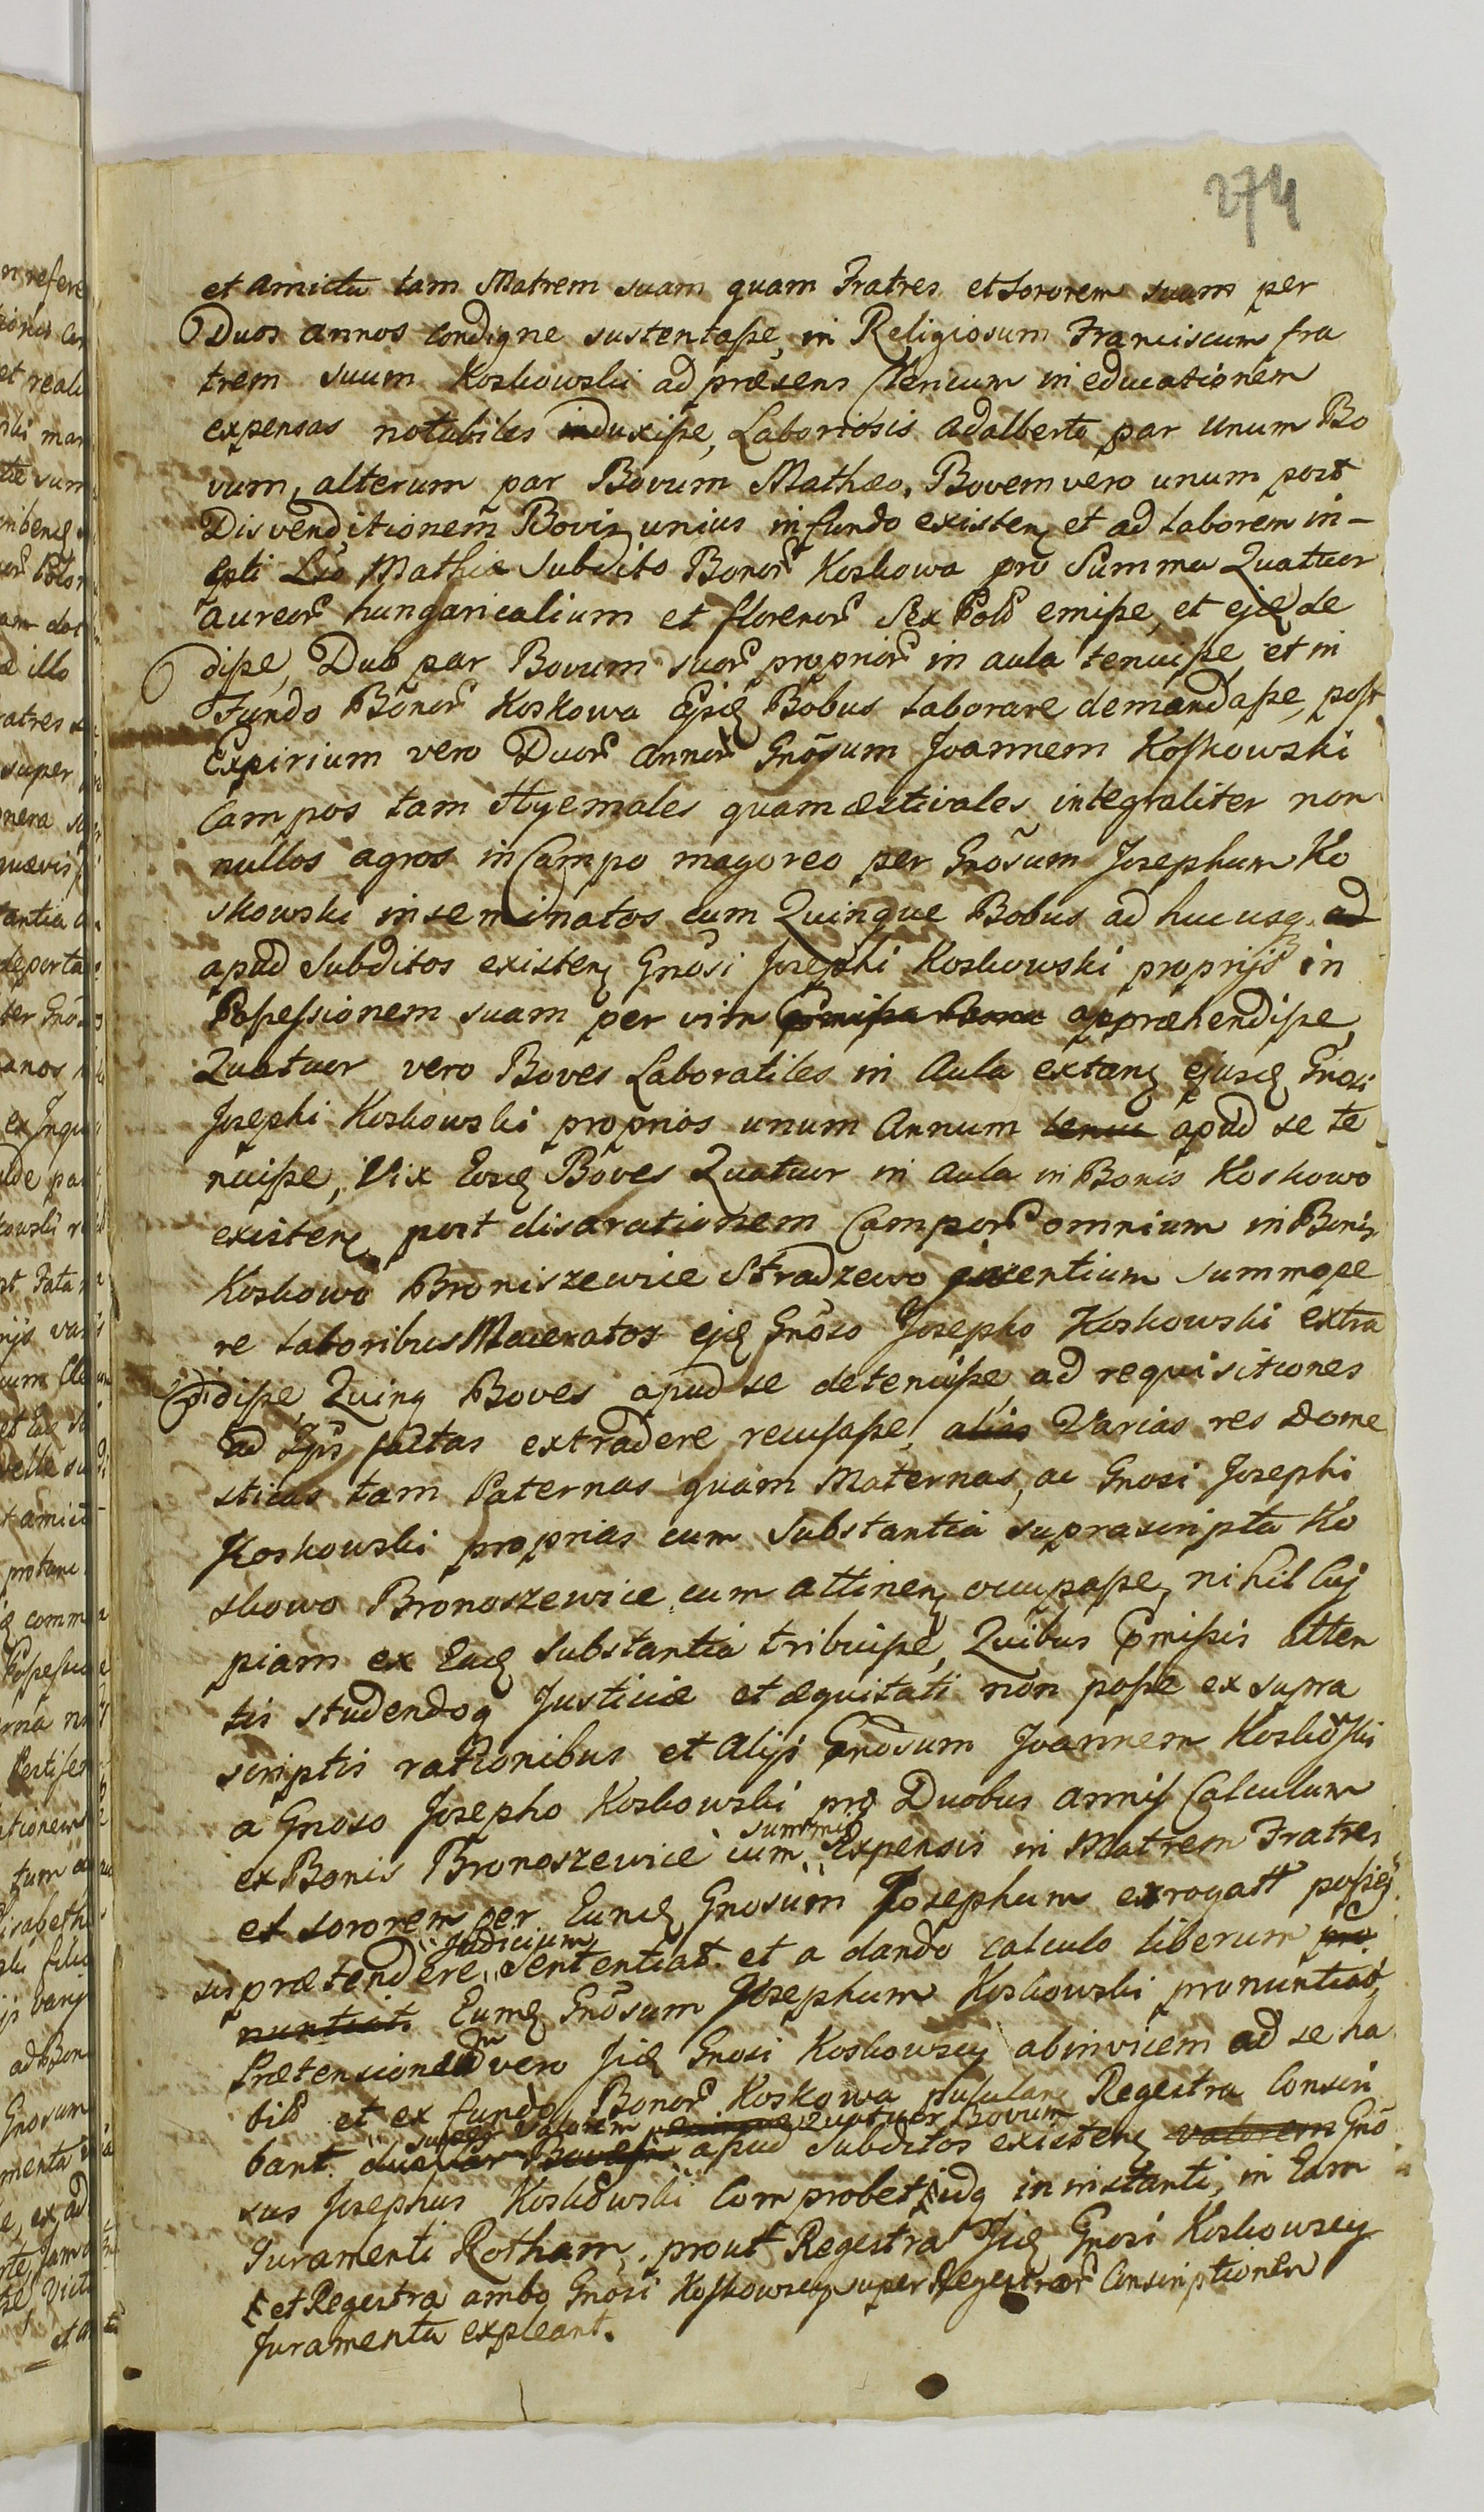 274
et amictu tam Matrem suam quam Fratres et Sororem suam per
Duos annos condigne sustentasse, in Religiosum Franciscum fra
trem suum Koskowski ad præsens Clericum in educationem
expensas notabiles induxisse, Laboriosis Adalberto par unum Bo
vum, alterum par Bovum Mathæo, Bovem vero unum post
Disvenditionem Bovis unius in fundo existen et ad laborem in-
epti Lso Mathiæ Subdito Bonor Koskowa pro Summa Quatuor
aureor hungaricalium et florenor Sex Pol emisse, et ejd de
disse, Duo par Bovum suor proprior in aula tenuisse et in
Fundo Bonor Koskowa Ejsd Bobus laborare demandasse, post
Expirium vero Duor annor Gnosum Joannem Koskowski
Campos tam Hyemales quam æstivales integraliter non
nullos agros in Campo magoreo per Gnosum Josephum Ko
skowski inseminatos cum Quinque Bobus ad hucusq ad
apud Subditos existen Gnosi Josephi Koskowski proprijs in
Possessionem suam per vim appræhendisse,
Quatuor vero Boves Laboratiles in Aula extan ejusd Gnosi
Josephi Koskowski proprios unum Annum tenui apud se te
nuisse, Vix Eosd Boves Quatuor in Aula in Bonis Koskowo
existen post disarationem Campor omnium in Bonis
Koskowo Broniszewice Stradzewo existentium summope
re laboribus Maceratos ejd Gnoso Josepho Koskowski extra
disse, Quinq Boves apud se detenuisse ad requisitiones
ad Ipsi factas extradere recusasse, alias Varias res Dome
sticas tam Paternas quam Maternas, ac Gnosi Josephi
Koskowski proprias cum Substantia suprascripta Ko
skowo Bronoszewice cum attinen occupasse, nihil Cuj
piam ex Ead Substantia tribuisse, Quibus Pmissis atten
tis studendoq Justiciæ et æquitati non posse ex supra
scriptis rationibus et Alijs Gnosum Joannem Koskowski
a Gnoso Josepho Koskowski pro Duobus annis Calculum
ex Bonis Bronoszewice cum summis Expensis in Matrem Fratres
et sororem per Eund Gnosum Josephum erogatt posses
sis prætendere, Judicium Sententiat. et a dando calculo liberum pro
nuntiat. Eumd Gnosum Josephum Koskowski pronuntiat,
Prætensionedm vero Jid Gnosi Koskowscy abinvicem ad se ha
bil et ex fundo Bonor Koskowa Regestra Conscri
bant. super Valorem Quatuor Bovum apud Subditos existen valorem Gno
sus Josephus Koskowski Comprobet, idq in instanti, in Eam
Juramenti Rotham, prout Regestra Jid Gnosi Koskowscy
et Regestra ambo Gnosi Koskowscy super Regestror Conscriptionem
Juramenta expleant.